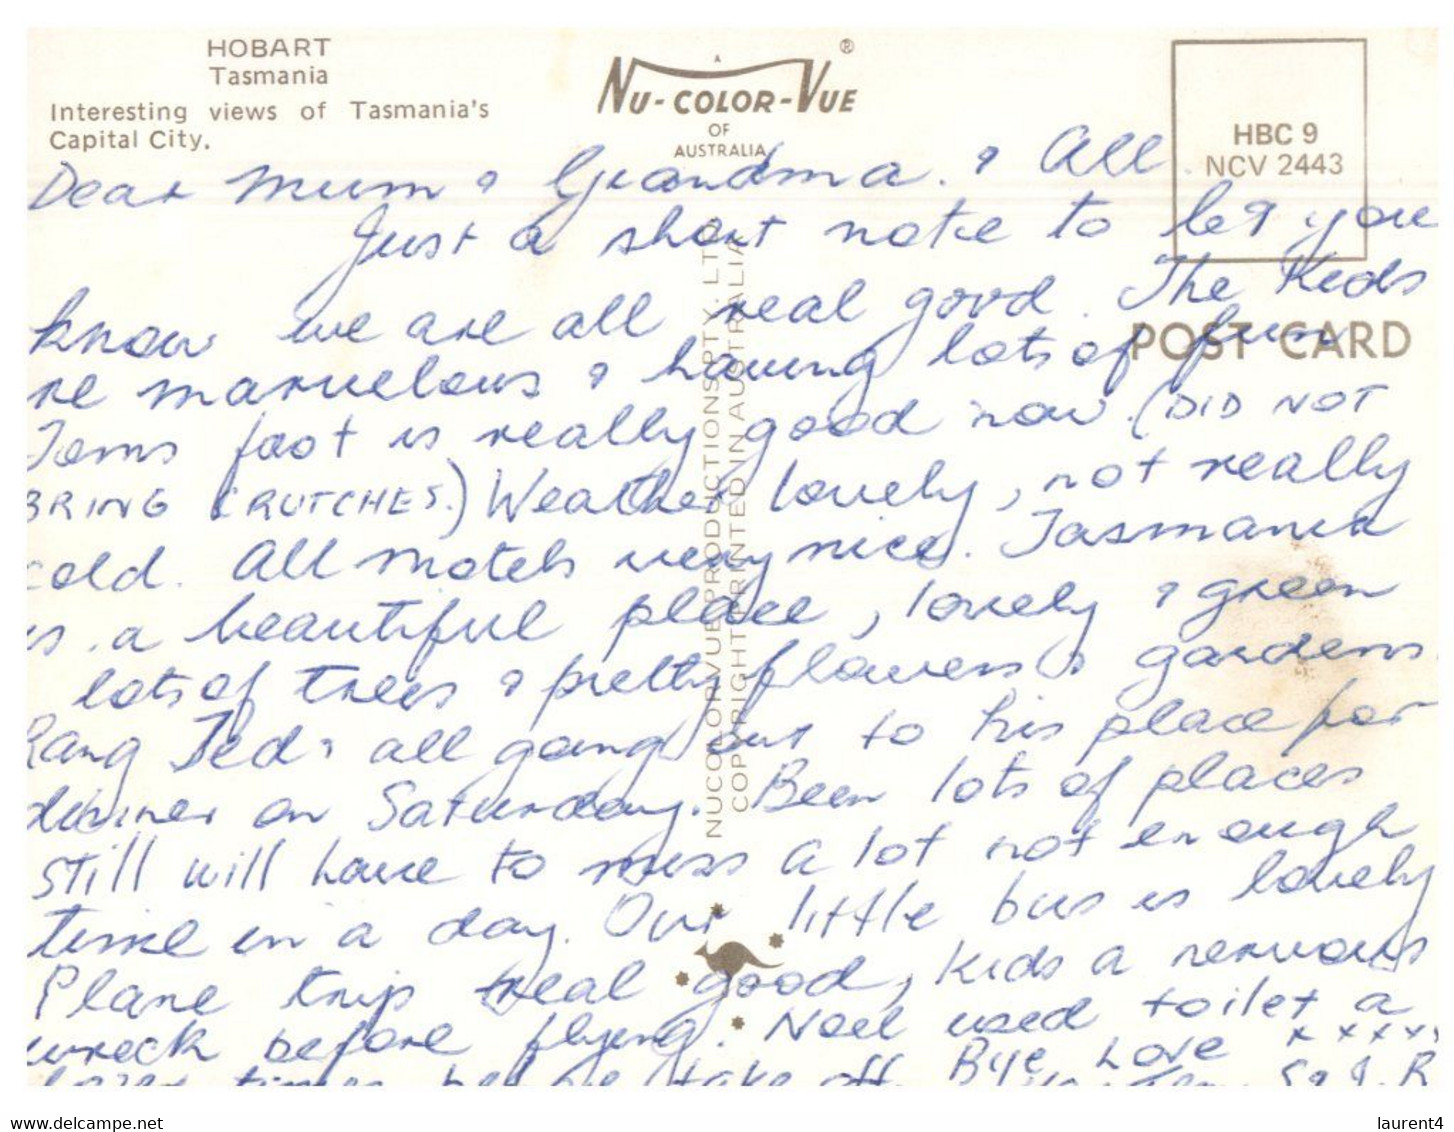 HOBART
Tasmania
Interesting views of Tasmania's
Capital City.
A
NU-COLOR-VUE ®
OF
AUSTRALIA
HBC 9
NCV 2443
POST CARD
NUCOLORVUE PRODUCTIONS PTY. LTD.
COPYRIGHT PRINTED IN AUSTRALIA
Dear Mum & Grandma. & All.
Just a short note to let you
know we are all real good. The Kids
re marvelous & having lots of fun
Toms foot is really good now. (DID NOT
BRING CRUTCHES.) Weather lovely, not really
cold. All Motels very nice. Tasmania
is a beautiful place, lovely & green
lots of trees & pretty flowers & gardens.
Rang Ted & all going out to his place for
dinner on Saturday. Been lots of places
still will have to miss a lot not enough
time in a day. Our little bus is lovely
Plane trip real good, Kids a nervous
wreck before flying. Noel used toilet a
times before take off. Bye Love xxxxx
www.delcampe.net
laurent4